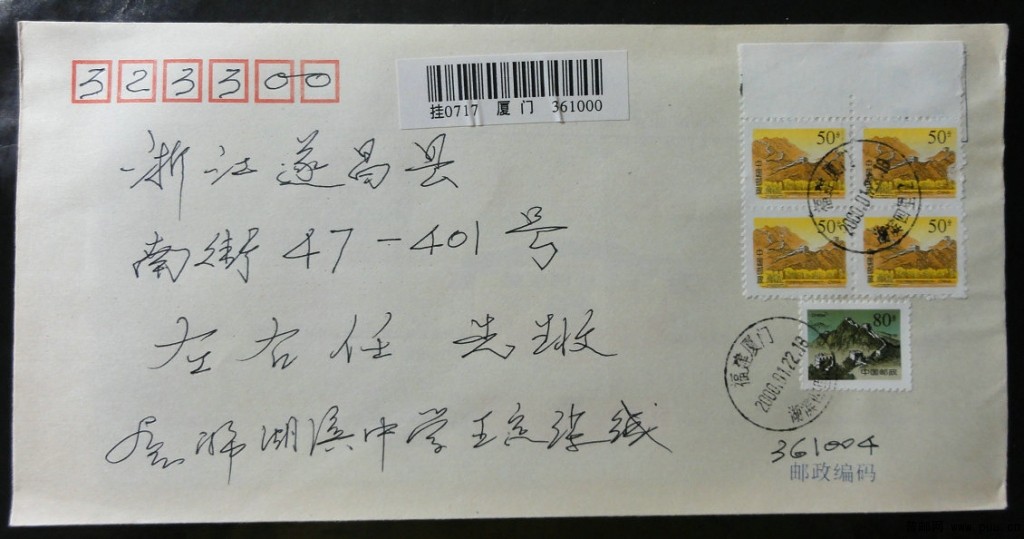 323300
挂0717 厦门 361000
浙江遂昌县
南街47-401号
左右任 先生收
湖滨中学王
361004
邮政编码
50分
50分
50分
50分
80分
中国邮政
福建厦门
2000.01.22.18
福建厦门
2000.01.22.18